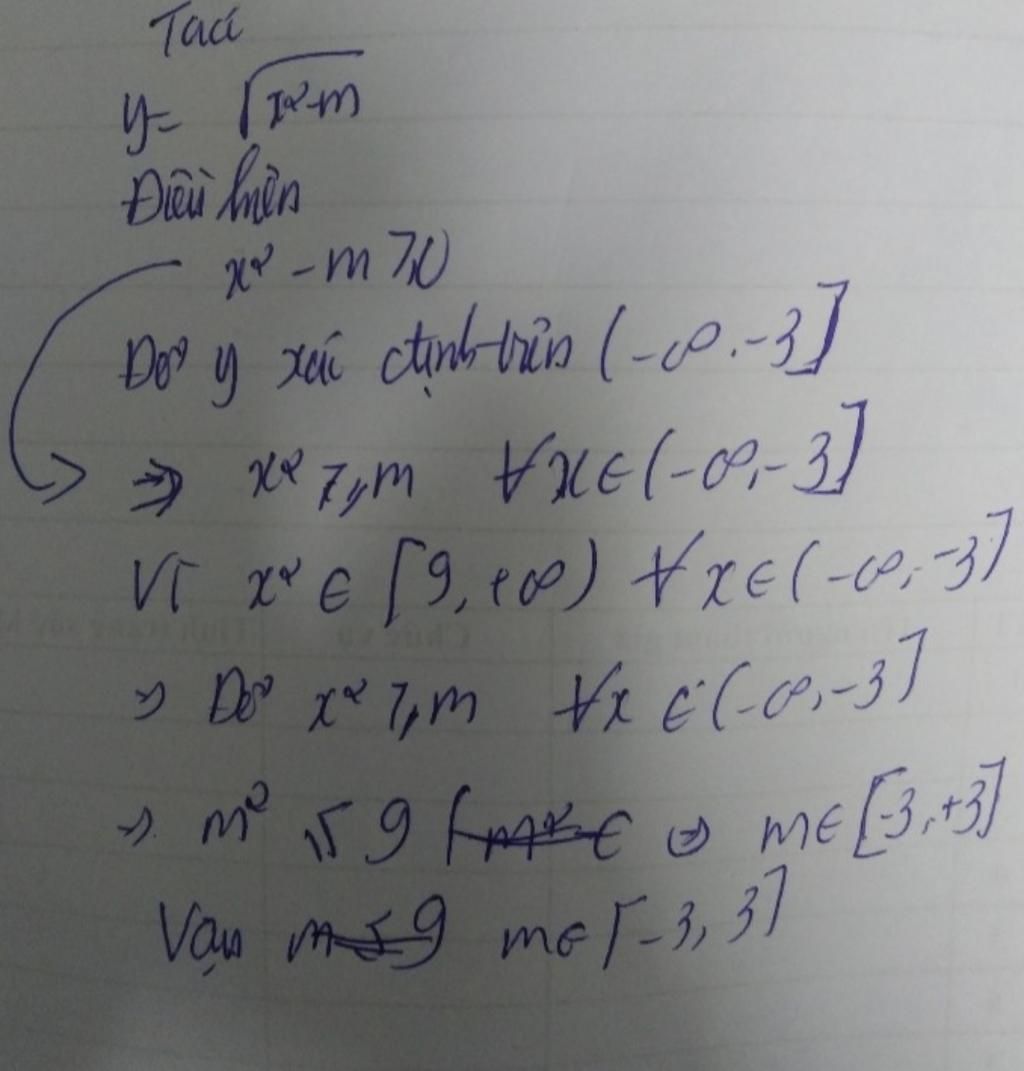 Ta có
y = √(x²-m)
Điều kiện
x² - m ≥ 0
Do y xác định trên (-∞,-3]
=> x² ≥ m ∀x∈(-∞,-3]
Vì x² ∈ [9,+∞) ∀x∈(-∞,-3]
=> Do x² ≥ m ∀x ∈ (-∞,-3]
=> m² ≤ 9 (m² ∈ <=> m∈[-3,+3]
Vậy m≤9 m∈[-3,3]